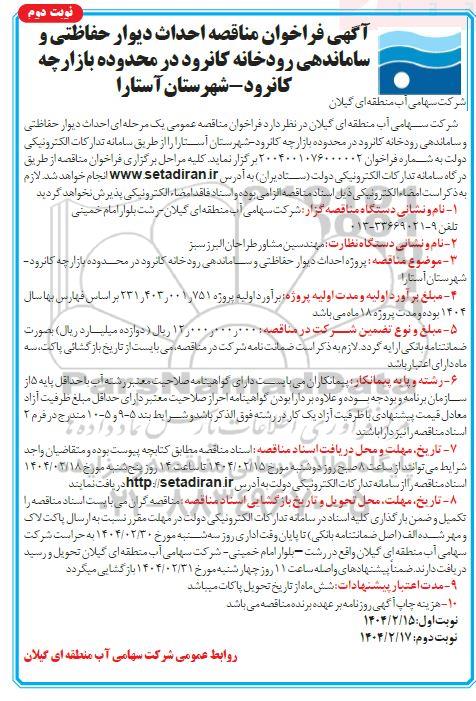 نوبت دوم
آگهی فراخوان مناقصه احداث دیوار حفاظتی و
ساماندهی رودخانه کانرود در محدوده بازارچه
کانرود-شهرستان آستارا
شرکت سهامی آب منطقه‌ای گیلان
شرکت سهامی آب منطقه ای گیلان در نظر دارد فراخوان مناقصه عمومی یک مرحله ای احداث دیوار حفاظتی
و ساماندهی رودخانه کانرود در محدوده بازارچه کانرود-شهرستان آستارا را از طریق سامانه تدارکات الکترونیکی
دولت به شماره فراخوان ۲۰۰۴۰۰۱۰۷۶۰۰۰۰۰۲ برگزار نماید. کلیه مراحل برگزاری فراخوان مناقصه از طریق
درگاه سامانه تدارکات الکترونیکی دولت (ستاد ایران) به آدرس www.setadiran.ir انجام خواهد شد. لازم
به ذکر است امضاء الکترونیکی ذیل اسناد مناقصه الزامی بوده و اسناد فاقد امضاء الکترونیکی پذیرش نخواهد گردید
۱- نام و نشانی دستگاه مناقصه گزار: شرکت سهامی آب منطقه ای گیلان-رشت بلوار امام خمینی
تلفن ۹-۳۳۶۶۹۰۲۱-۰۱۳
۲- نام و نشانی دستگاه نظارت: مهندسین مشاور طراحان البرز سبز
۳- موضوع مناقصه: پروژه احداث دیوار حفاظتی و ساماندهی رودخانه کانرود در محدوده بازارچه کانرود-
شهرستان آستارا
۴- مبلغ برآورد اولیه و مدت اولیه پروژه: برآورد اولیه پروژه ۲۳۱,۴۰۳,۰۰۱,۷۵۱ بر اساس فهارس بها سال
۱۴۰۴ بوده و مدت پروژه ۱۸ ماه می باشد
۵- مبلغ و نوع تضمین شرکت در مناقصه: ۱۲,۰۰۰,۰۰۰,۰۰۰ ریال (دوازده میلیارد ریال) بصورت
ضمانتنامه بانکی ارایه گردد. لازم به ذکر است ضمانت نامه شرکت در مناقصه، می بایست از تاریخ بازگشائی پاکت، سه
ماه دارای اعتبار باشد
۶- رشته و پایه پیمانکار: پیمانکاران می بایست دارای گواهینامه صلاحیت معتبر رشته آب با حداقل پایه ۵ از
سازمان برنامه و بودجه بوده و علاوه بر دارا بودن گواهینامه احراز صلاحیت معتبر دارای حداقل مبلغ ظرفیت آزاد
معادل قیمت پیشنهادی با ظرفیت آزاد یک کار در رشته فوق الذکر باشد و شرایط بند ۵-۹ و ۵-۱۰ مندرج در فرم ۲
اسناد مناقصه را نیز دارا باشند
۷- تاریخ، مهلت و محل دریافت اسناد مناقصه: اسناد مناقصه مطابق کتابچه پیوست بوده و متقاضیان واجد
شرایط می توانند از ساعت ۸ صبح روز دوشنبه مورخ ۱۴۰۴/۰۲/۱۵ تا ساعت ۱۴ روز پنج شنبه مورخ ۱۴۰۴/۰۲/۱۸
اسناد مناقصه را از سامانه تدارکات الکترونیکی دولت به آدرس http://setadiran.ir دریافت نمایند
۸- تاریخ، مهلت، محل تحویل و تاریخ بازگشایی اسناد مناقصه: مناقصه گران می بایست اسناد مناقصه را
تکمیل و ضمن بارگذاری کلیه اسناد در سامانه تدارکات الکترونیکی دولت در مهلت مقرر نسبت به ارسال پاکت لاک
و مهر شده الف (اصل ضمانتنامه بانکی) تا پایان وقت اداری روز سه شنبه مورخ ۱۴۰۴/۰۲/۳۰ به حراست شرکت
سهامی آب منطقه ای گیلان واقع در رشت – بلوار امام خمینی- شرکت سهامی آب منطقه ای گیلان تحویل و رسید
دریافت دارند. ضمناً پیشنهادهای واصله ساعت ۱۱ روز چهارشنبه مورخ ۱۴۰۴/۰۲/۳۱ بازگشایی میگردد
۹- مدت اعتبار پیشنهادات: شش ماه از تاریخ تحویل پاکات میباشد
۱۰- هزینه چاپ آگهی روزنامه بر عهده برنده مناقصه می باشد
نوبت اول: ۱۴۰۴/۲/۱۵
نوبت دوم: ۱۴۰۴/۲/۱۷
روابط عمومی شرکت سهامی آب منطقه ای گیلان